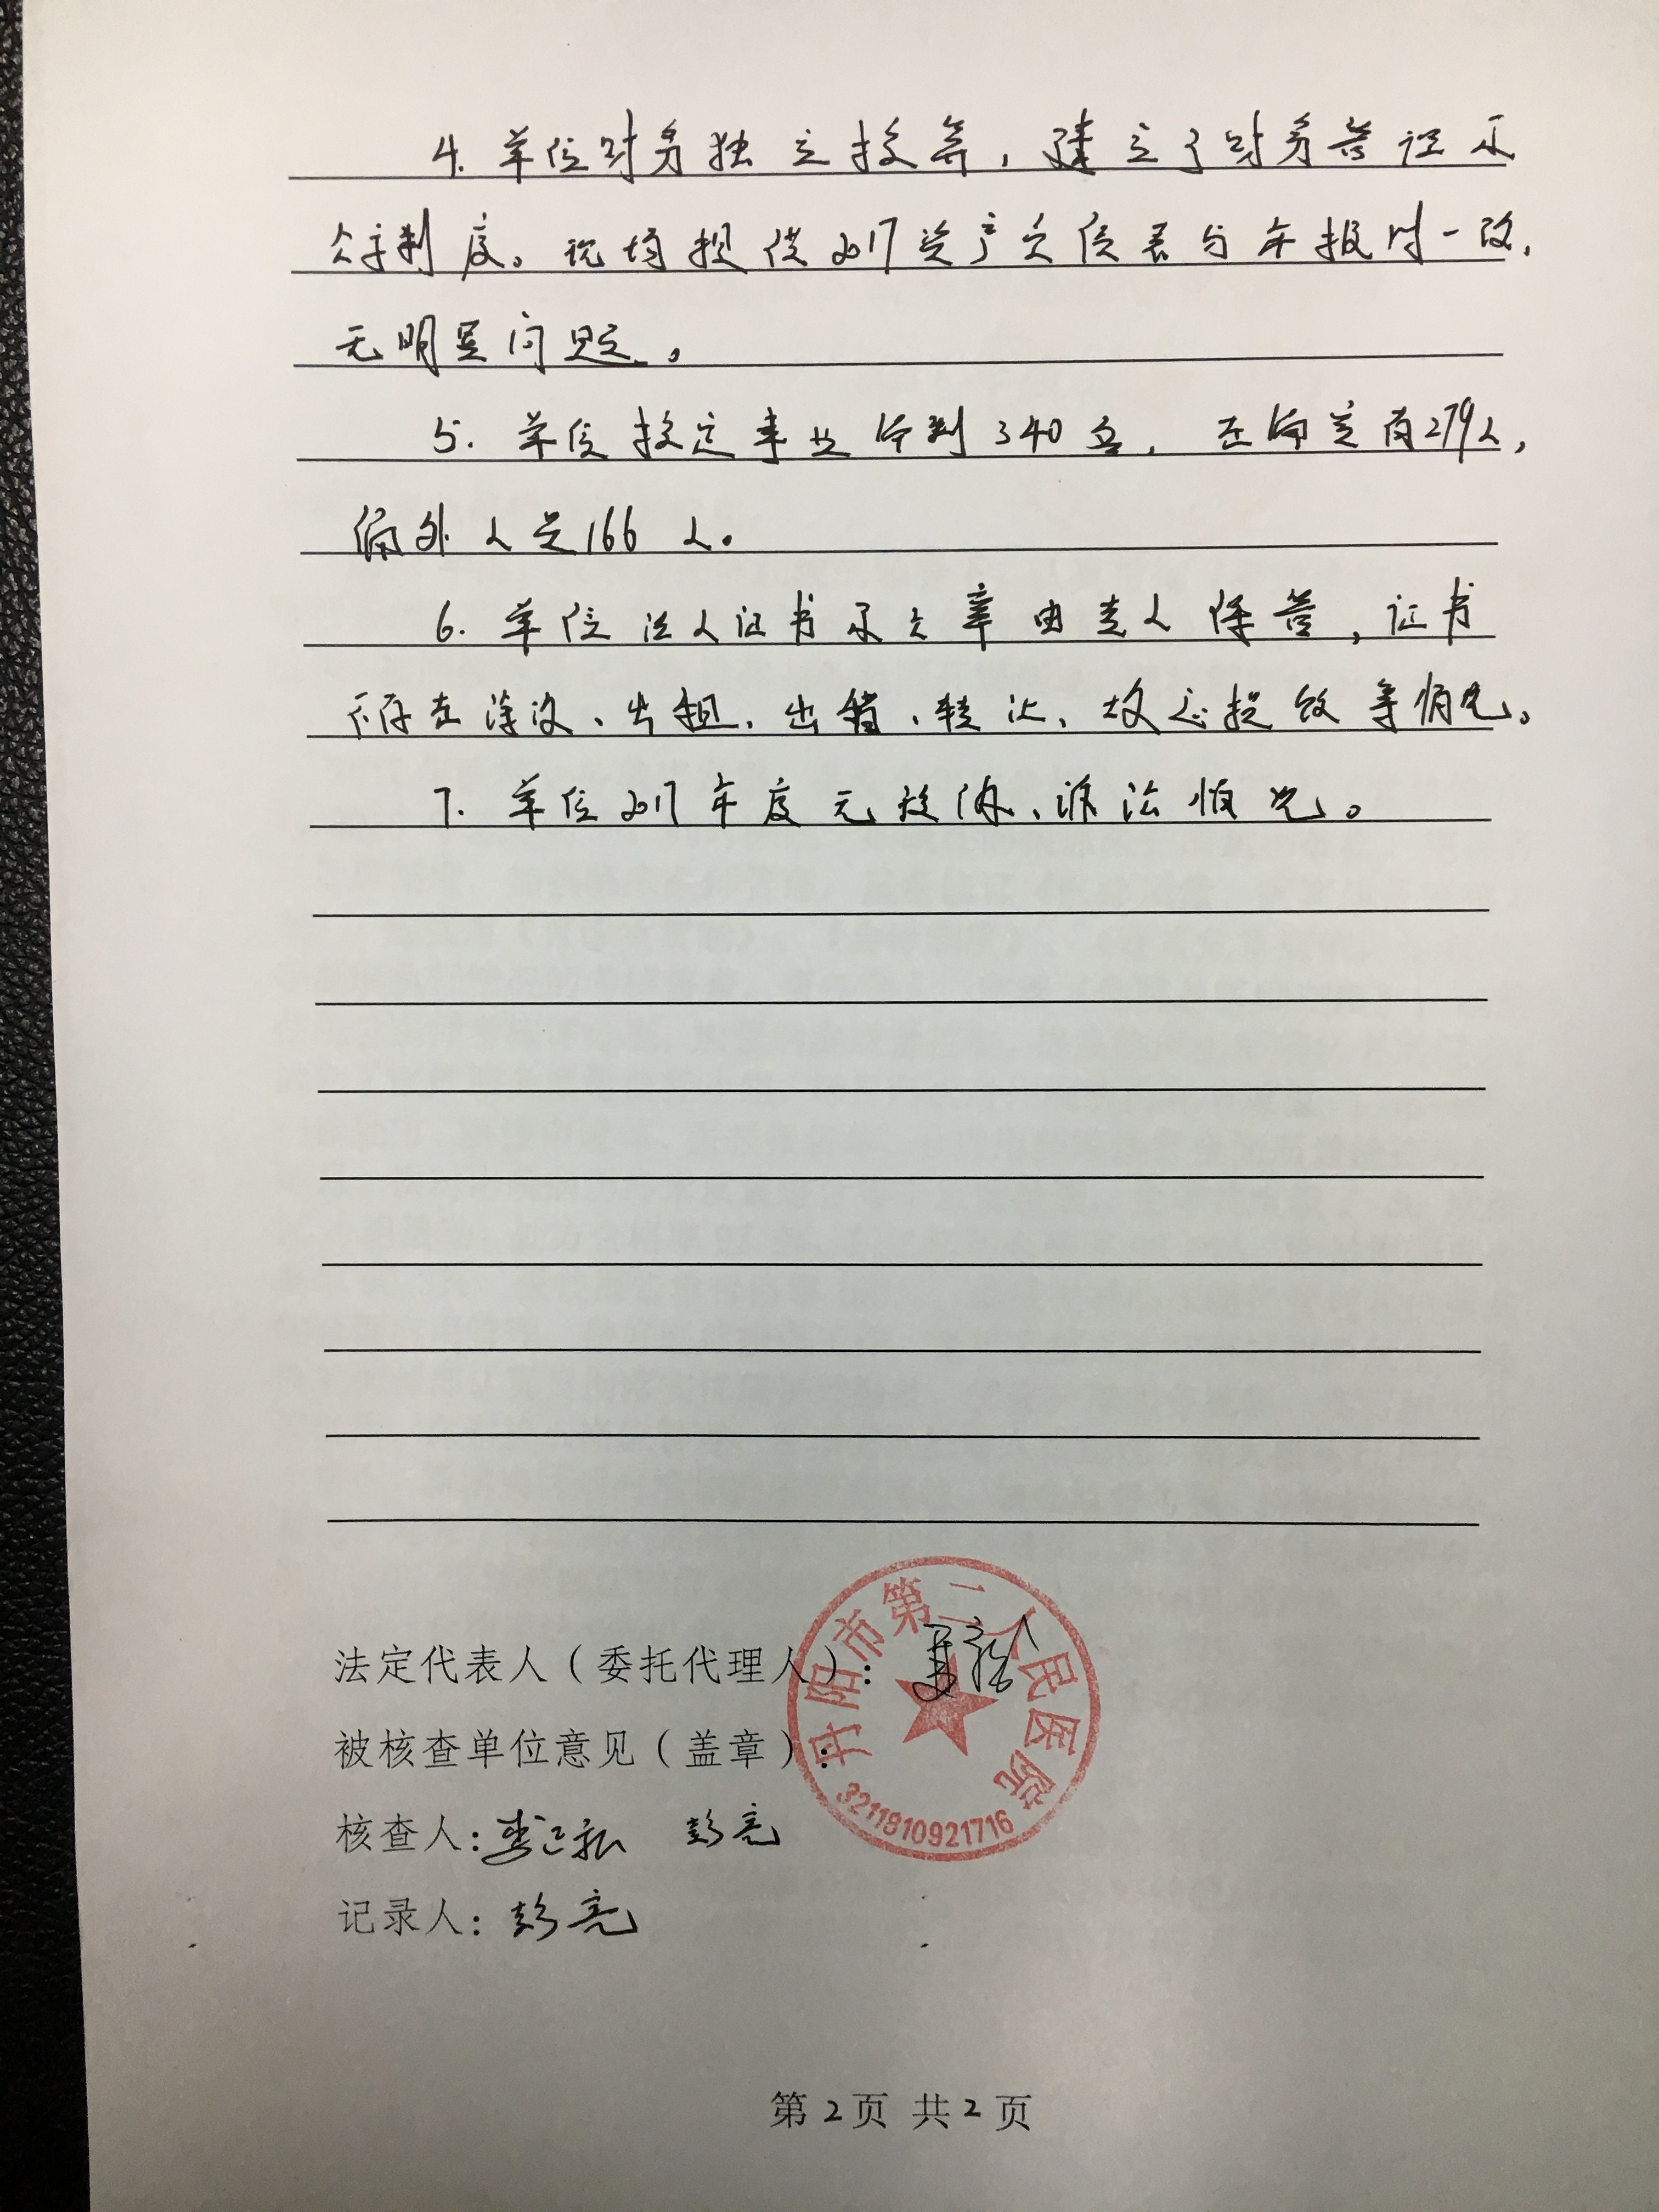 4. 单位财务独立核算，建立了财务管理及
公开制度。现场提供2017资产负债表与年报时一致，
无明显问题。
5. 单位核定事业编制340名，在编实有279人，
编外人员166人。
6. 单位法人证书及公章由专人保管，证书
不存在涂改、出租、出借、转让、故意损毁等情况。
7. 单位2017年度无投诉、涉法情况。
丹阳市第二人民医院
3211810921716
法定代表人（委托代理人）：
被核查单位意见（盖章）：
核查人： 彭亮
记录人：彭亮
第2页 共2页